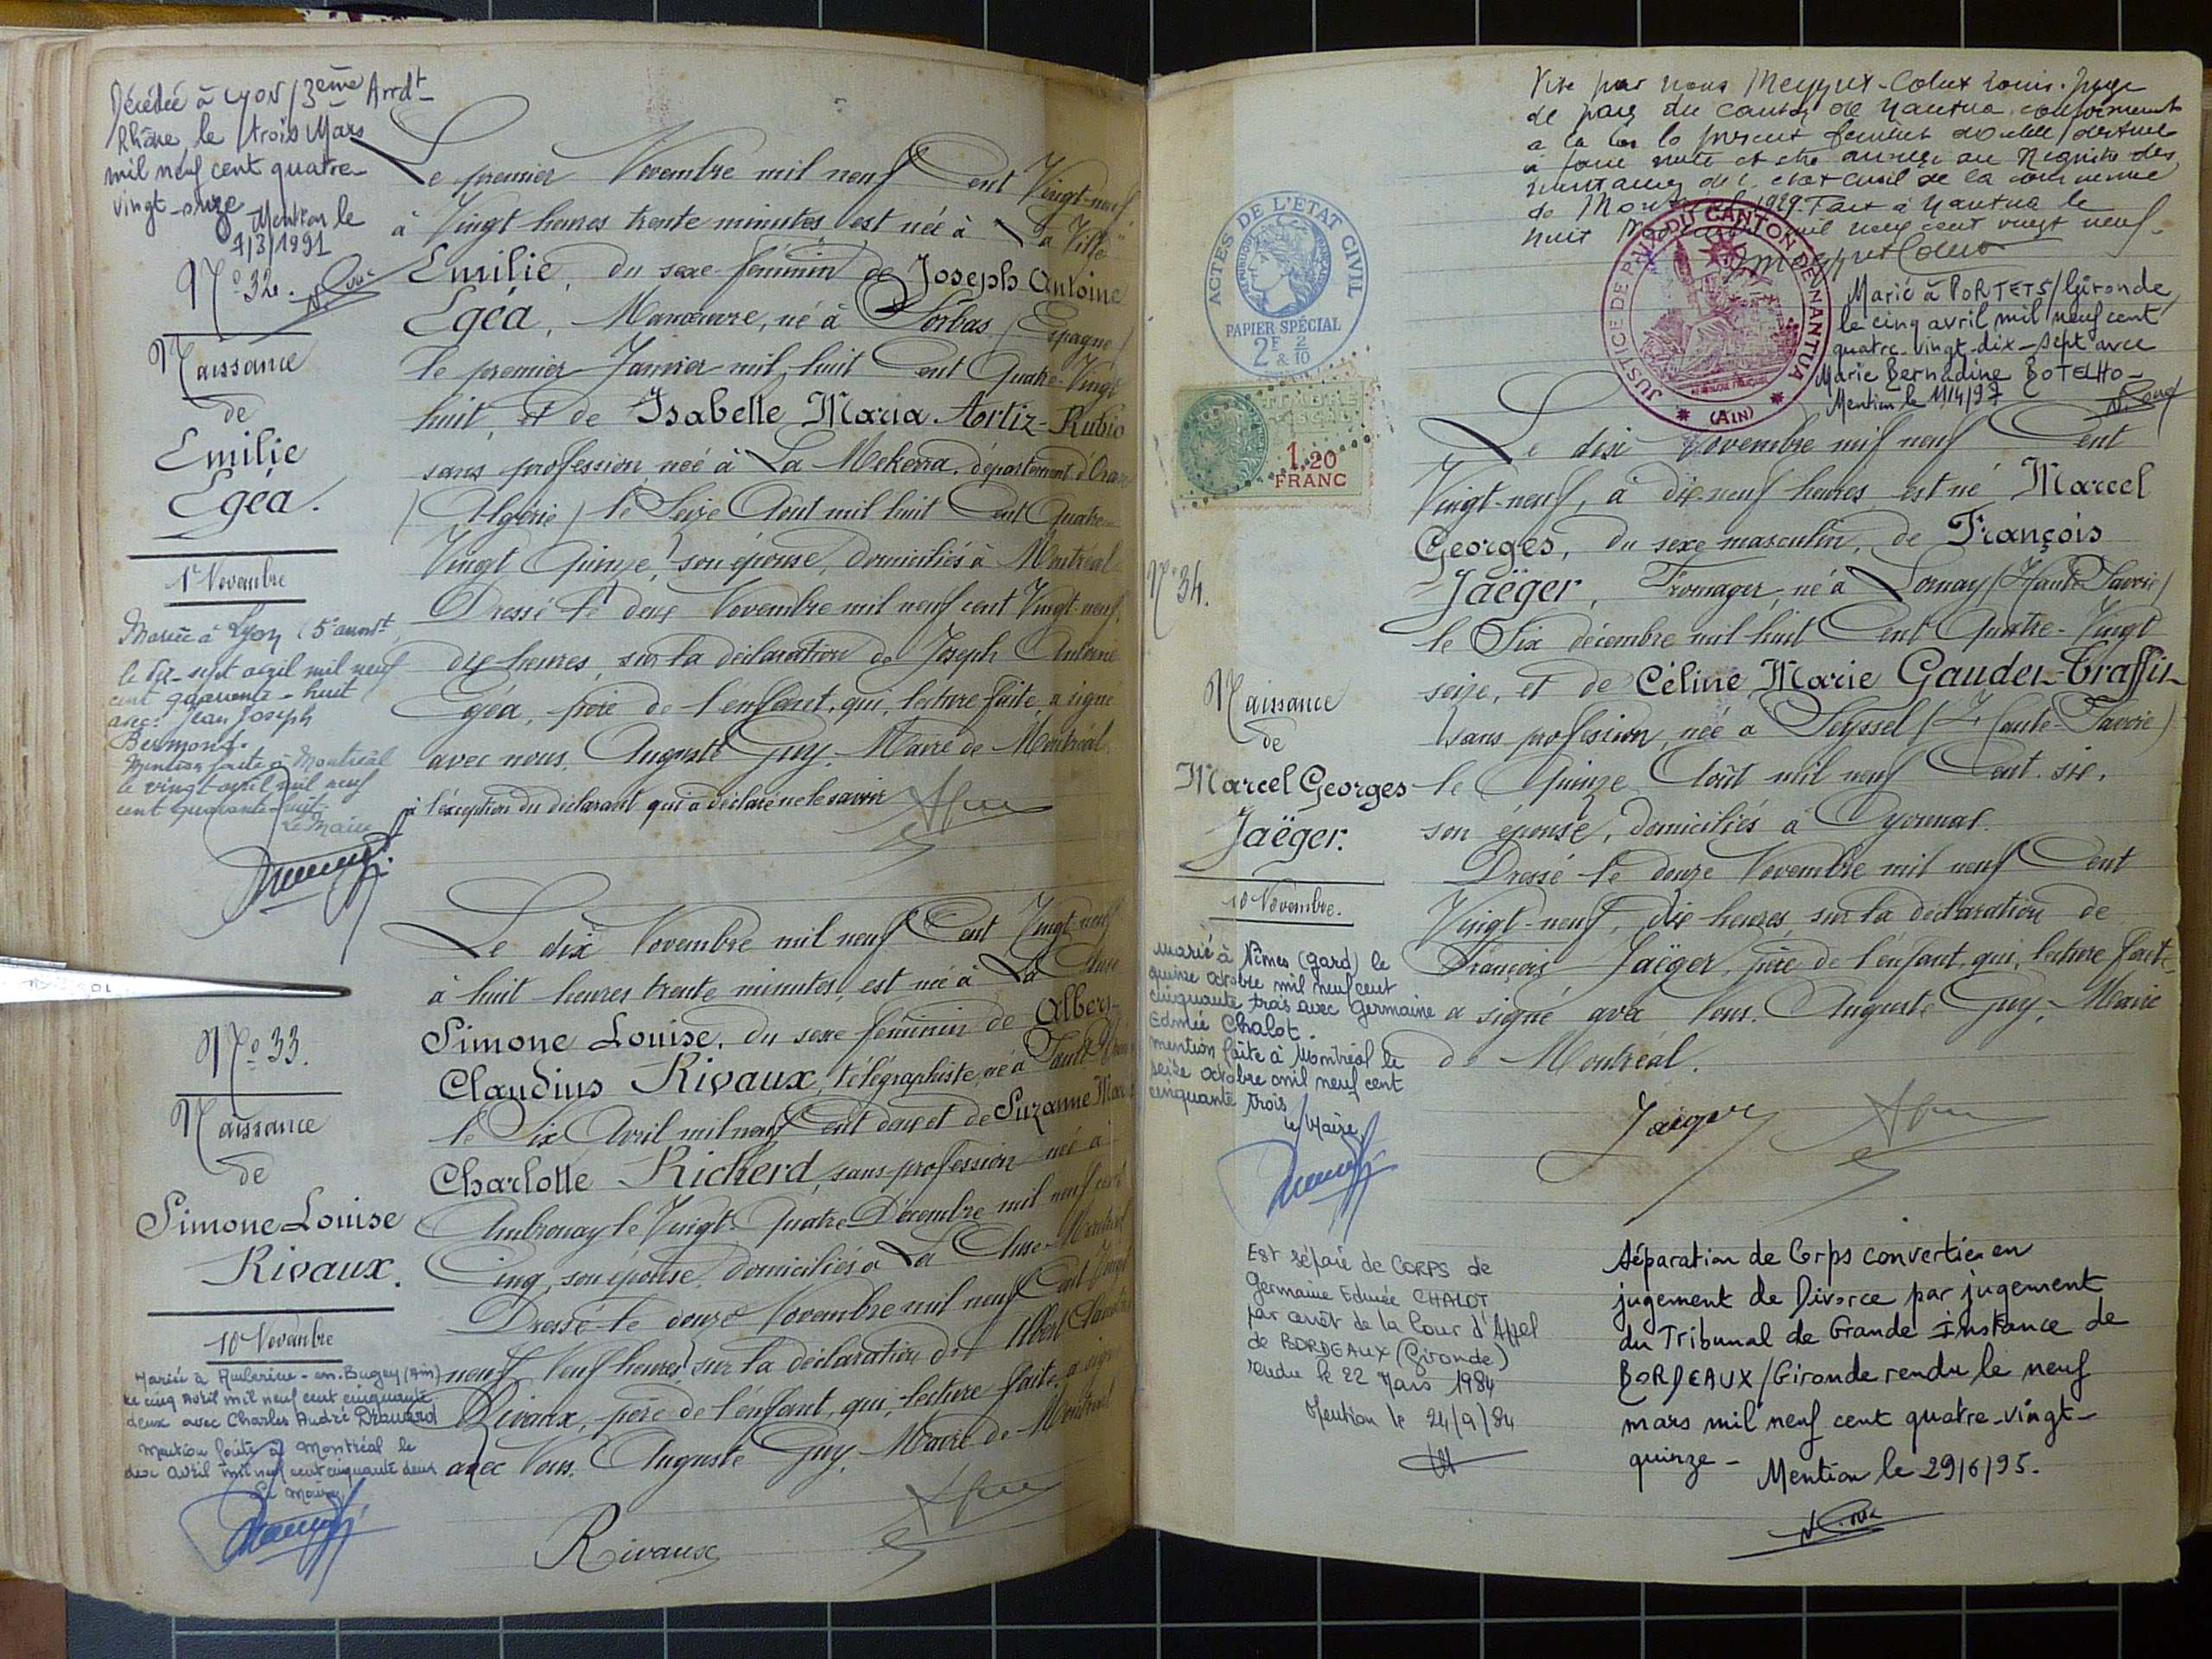 Décédée à LYON / 3ème Arrdt
Rhône, le trois Mars
mil neuf cent quatre-
vingt-onze
Mention le
7/3/1991
N° 32.
Naissance
de
Emilie
Egéa.
1er Novembre
Mariée à Lyon (5e arrondt
le dix-sept avril mil neuf
cent quarante-huit
avec Jean Joseph
Bermond.
Mention faite à Montréal
le vingt avril mil neuf
cent quarante-huit
Le Maire
Le premier Novembre mil neuf Cent Vingt-neuf
à Vingt heures trente minutes est née à "La Ville"
Emilie, du sexe féminin de Joseph Antoine
Egéa, Manœuvre, né à Sorbas (Espagne)
le premier Janvier mil huit Cent Quatre-Vingt
huit, et de Isabelle Maria Artiz-Rubio
sans profession née à La Mekerra, département d'Oran
(Algérie) le Seize Août mil huit Cent Quatre
Vingt Quinze, son épouse, domiciliés à Montréal
Dressé le deux Novembre mil neuf cent Vingt-neuf,
dix heures, sur la déclaration de Joseph Antoine
Egéa, père de l'enfant, qui, lecture faite, a signé
avec nous, Auguste Guy, Maire de Montréal
à l'exception du déclarant qui a déclaré ne le savoir
N° 33.
Naissance
de
Simone Louise
Rivaux.
10 Novembre
Mariée à Ambérieu-en-Bugey (Ain)
le cinq Avril mil neuf cent cinquante
deux avec Charles André
Mention faite à Montréal le
dix Avril mil neuf cent cinquante deux
Le Maire,
Le dix Novembre mil neuf Cent Vingt-neuf
à huit heures trente minutes, est née à La Cluse
Simone Louise, du sexe féminin de Albert
Claudius Rivaux, télégraphiste, né à
le Six Avril mil neuf Cent deux et de Suzanne Marie
Charlotte Richerd, sans profession née à
Ambronay le Vingt-Quatre Décembre mil neuf cent
Cinq, son épouse, domiciliés à La Cluse-Montréal
Dressé le douze Novembre mil neuf Cent Vingt
neuf, Neuf heures, sur la déclaration de Albert Claudius
Rivaux, père de l'enfant, qui, lecture faite, a signé
avec Nous, Auguste Guy, Maire de Montréal
Rivaux
Vité par nous Meyguet-Colux Louis. Juge
de paix du canton de Nantua conformément
à la loi le présent feuillet double destiné
à faire suite et être annexé au Registre des
de l'état civil de la commune
de Montréal 1929. Fait à Nantua le
huit Novembre mil neuf cent vingt neuf.
ACTES DE L'ÉTAT CIVIL
RÉPUBLIQUE FRANÇAISE
PAPIER SPÉCIAL
2F 2
& 10
JUSTICE DE PAIX DU CANTON DE NANTUA
(AIN)
TIMBRE
FISCAL
1,20
FRANC
Marié à PORTETS/Gironde
le cinq avril mil neuf cent
quatre-vingt-dix-sept avec
Marie Bernadine BOTELHO-
Mention le 11/4/97
N° 34.
Naissance
de
Marcel Georges
Jaëger.
10 Novembre.
Marié à Nîmes (Gard) le
quinze octobre mil neuf cent
cinquante trois avec Germaine
Edmée Chalot.
mention faite à Montréal le
seize octobre mil neuf cent
cinquante trois
le Maire,
Le dix Novembre mil neuf Cent
Vingt-neuf, à dix neuf heures, est né Marcel
Georges, du sexe masculin, de François
Jaëger, Fromager, né à Lornay (Haute Savoie)
le Six décembre mil huit Cent Quatre-Vingt
seize, et de Céline Marie Gauder-Traffis
sans profession, née à Seyssel (Haute-Savoie)
le Quinze Août mil neuf Cent six,
son épouse, domiciliés à Oyonnax.
Dressé le douze Novembre mil neuf Cent
Vingt-neuf, dix heures, sur la déclaration de
François Jaëger, père de l'enfant, qui, lecture faite
a signé avec Nous, Auguste Guy, Maire
de Montréal.
Jaëger
Est séparé de CORPS de
Germaine Edmée CHALOT
par arrêt de la Cour d'Appel
de BORDEAUX (Gironde)
rendu le 22 Mars 1984
Mention le 24/9/84
Séparation de Corps convertie en
jugement de Divorce par jugement
du Tribunal de Grande Instance de
BORDEAUX/Gironde rendu le neuf
mars mil neuf cent quatre-vingt-
quinze -
Mention le 29/6/95.